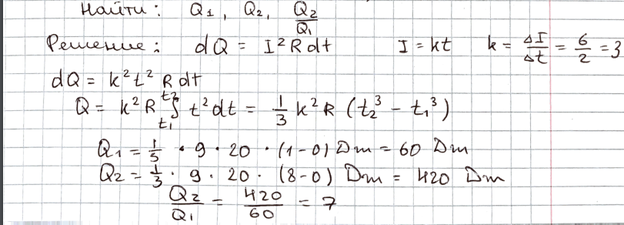 Найти: Q₁, Q₂, Q₂/Q₁
Решение: dQ = I²Rdt I = kt k = ΔI/Δt = 6/2 = 3
dQ = k²t²Rdt
Q = k²R ∫_{t₁}^{t₂} t²dt = 1/3 k²R (t₂³ - t₁³)
Q₁ = 1/3 · 9 · 20 · (1-0) Dm = 60 Dm
Q₂ = 1/3 · 9 · 20 · (8-0) Dm = 420 Dm
Q₂/Q₁ = 420/60 = 7